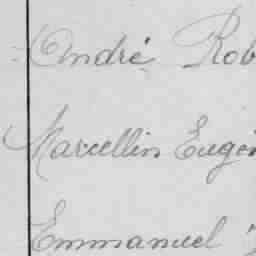 André Rob
Marcellin Eugèn
Emmanuel